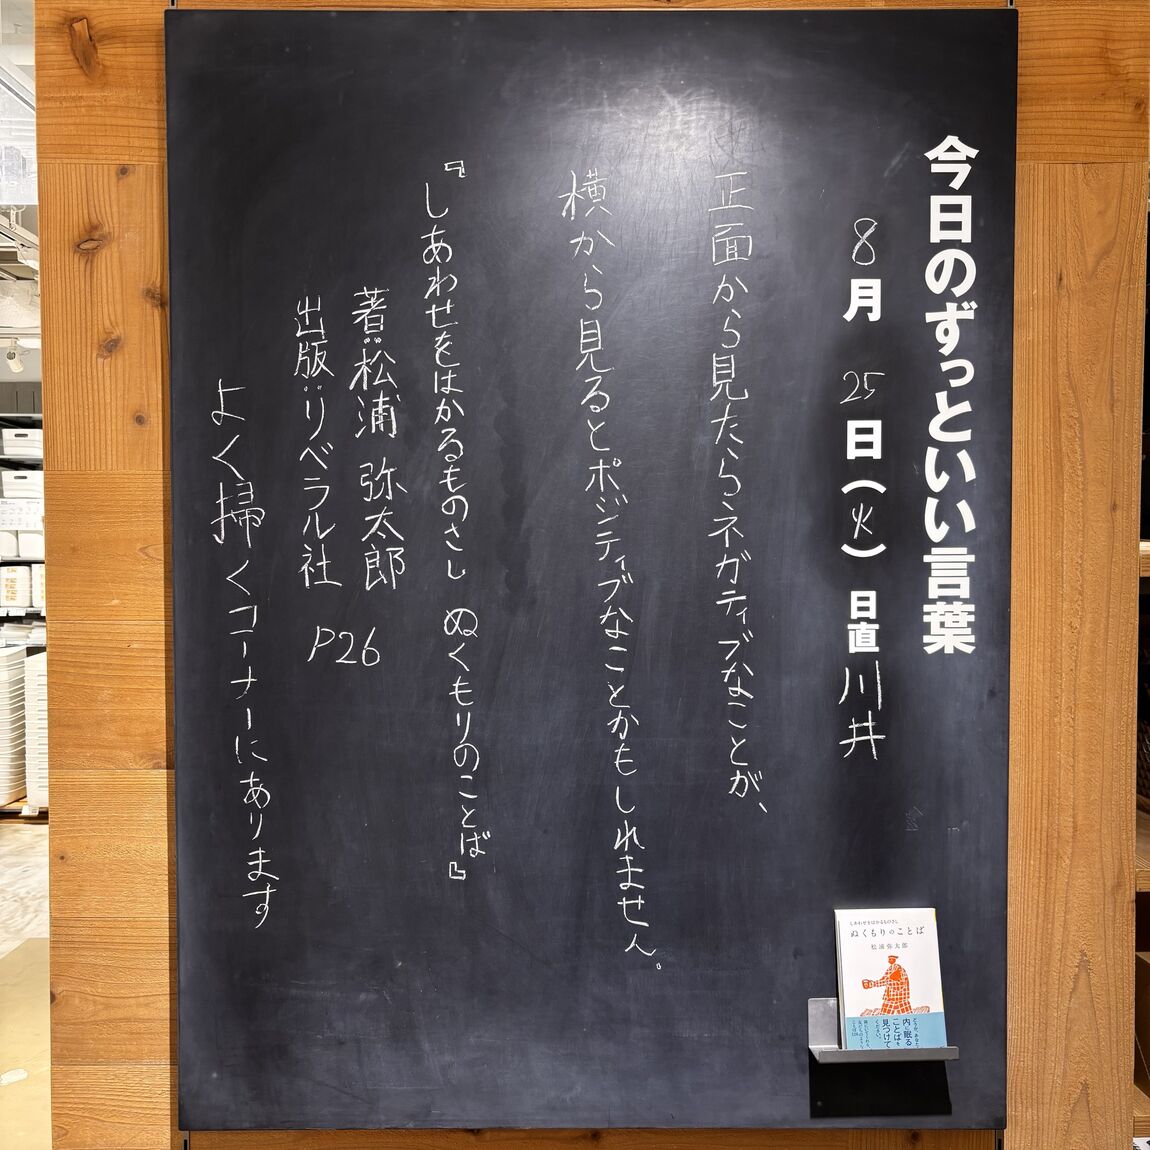 今日のずっといい言葉
8月25日(火) 日直 川井
正面から見たらネガティブなことが、
横から見るとポジティブなことかもしれません。
『しあわせをはかるものさし ぬくもりのことば』
著:松浦 弥太郎
出版:リベラル社 P26
よく掃くコーナーにあります
しあわせをはかるものさし
ぬくもりのことば
松浦弥太郎
どうか、あなたの
内に眠る
ことばを
見つけて
ください。